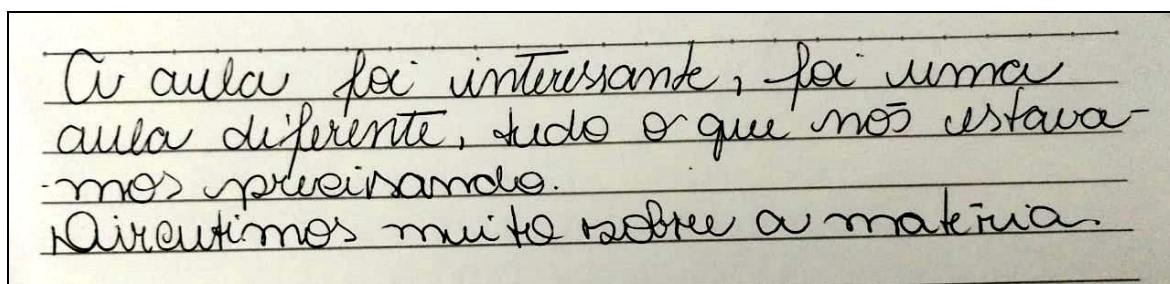 A aula foi interessante, foi uma
aula diferente, tudo o que nós estava-
-mos precisando.
Discutimos muito sobre a matéria.